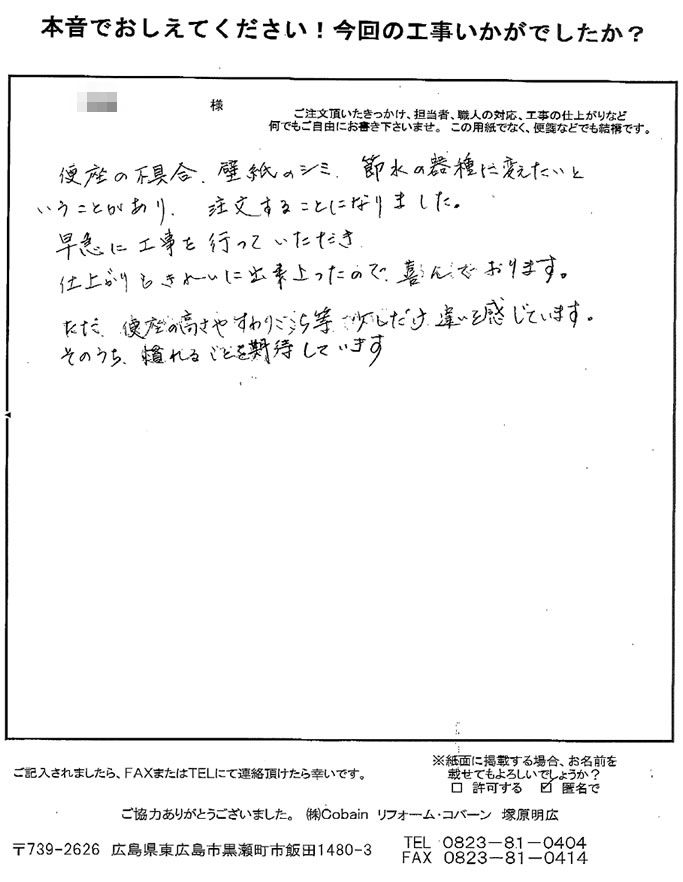 本音でおしえてください！今回の工事いかがでしたか？
様
ご注文頂いたきっかけ、担当者、職人の対応、工事の仕上がりなど
何でもご自由にお書き下さいませ。この用紙でなく、便箋などでも結構です。
便座の不具合、壁紙のシミ、節水の器種に変えたいと
いうことがあり、注文することになりました。
早急に工事を行っていただき、
仕上がりもきれいに出来上ったので、喜んでおります。
ただ、便座の高さやすわりごこち等、少しだけ違いを感じています。
そのうち、慣れることを期待しています
ご記入されましたら、FAXまたはTELにて連絡頂けたら幸いです。
※紙面に掲載する場合、お名前を
載せてもよろしいでしょうか？
□ 許可する ☑ 匿名で
ご協力ありがとうございました。 ㈱Cobain リフォーム・コバーン 塚原明広
〒739-2626 広島県東広島市黒瀬町市飯田1480-3
TEL 0823－81－0404
FAX 0823－81－0414